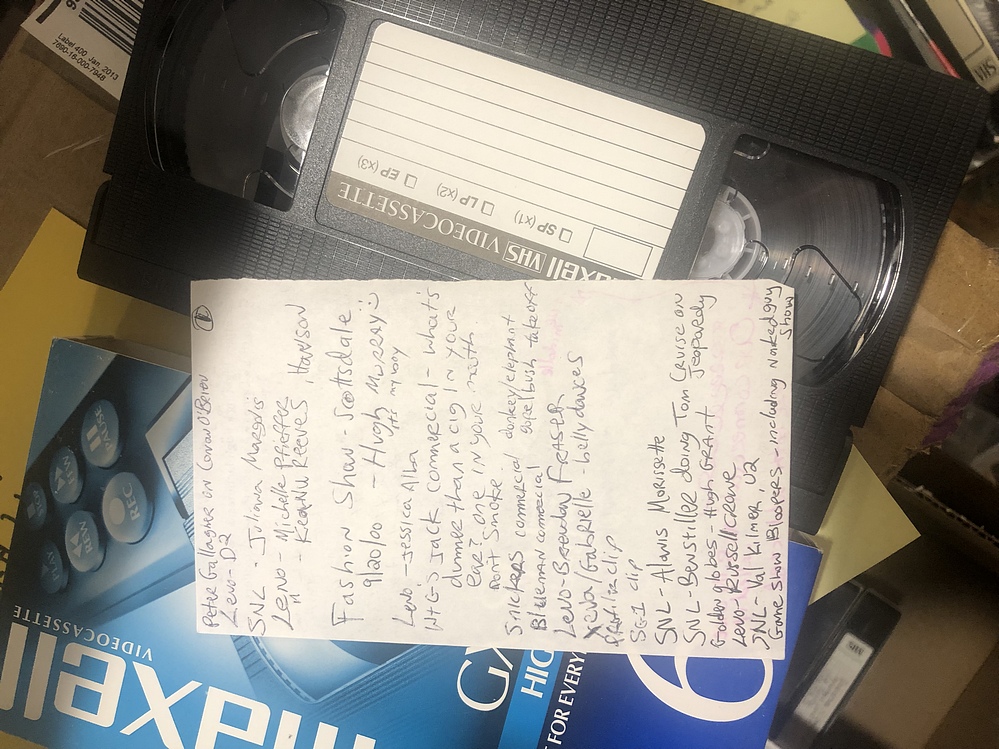 Label 400, Jan. 2013
7690-16-000-7948
maxell VHS VIDEOCASSETTE
SP (x1)
LP (x2)
EP (x3)
VHS
1
Peter Gallagher on Conan O'Brien
Leno - D2
SNL - Juliana Margolis
Leno - Michelle Pfeiffer
" - Keanu Reeves, Hanson
Fashion Show - Scottsdale
9/20/00 - Hugh Murray :)
off my body
Leno - Jessica Alba
W+G - Jack commercial - what's
dummer than a cig in your
ear? one in your mouth.
Don't Smoke.
Snickers commercial donkey/elephant
Blue man commercial gore/bush take off
Leno - Brendan Fraser
Xena/Gabrielle - belly dances
clip
SG-1 clip
SNL - Alanis Morissette
SNL - Ben Stiller doing Tom Cruise on
Jeopardy
Golden globes - Hugh GRANT
Leno - Russell Crowe
SNL - Val Kilmer, U2
Game Show Bloopers - including Naked guy
Show
PAUSE
REW
REC
maxell
VIDEOCASSETTE
GX
HIG
T FOR EVERY
6